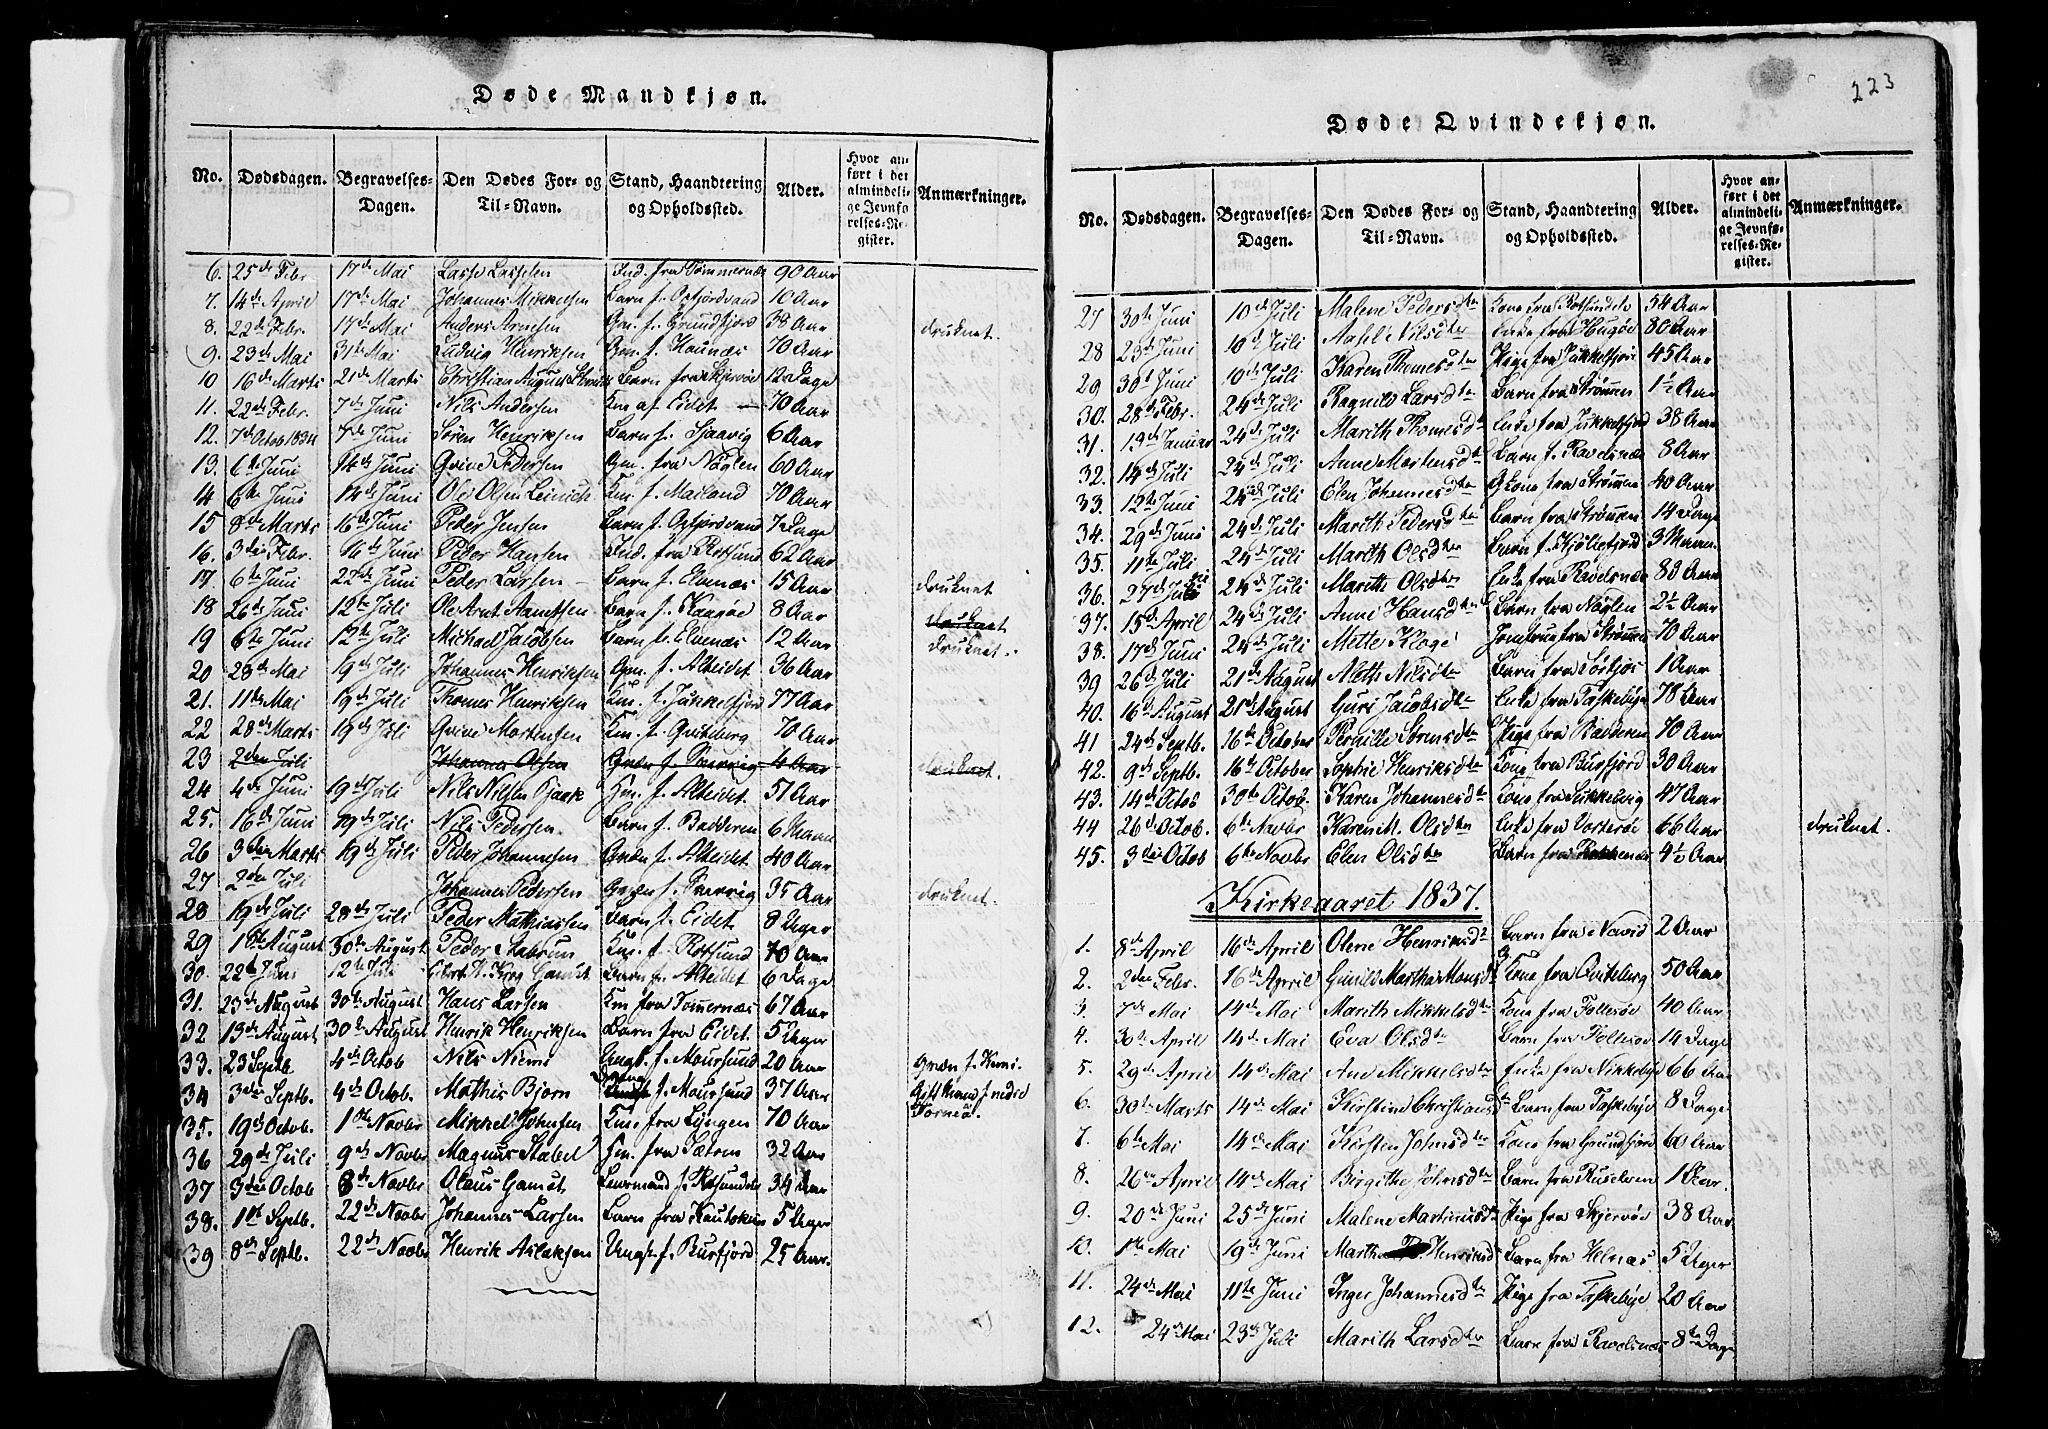 Døde Mandkjøn.
No. Dødsdagen. Begravelses-Dagen. Den Dødes For- og Til-Navn. Stand, Haandtering og Opholdssted. Alder. Hvor anført i det almindelige Jevnførelses-Register. Anmærkninger.
6. 25de Febr. 17de Mai Lasse Lassesen Ind. fra Tømmernæs 90 Aar
7. 14de April 17de Mai Johannes Mikkelsen Barn f. Oxfjordvand 10 Aar
8. 22de Febr. 17de Mai Anders Arnesen Gm. f. Grundfjord 38 Aar druknet.
9. 23de Mai 31te Mai Ludvig Henriksen Gm. f. Haunæs 70 Aar
10 16de Marts 21de Marts Christian August Barn fra Skjervøe 12 Dage
11. 22de Febr. 7de Juni Nils Andersen Km af Eidet 70 Aar
12. 7de Octob 1834 7de Juni Sören Henriksen Barn f. 6 Aar
13. 6te Juni 14de Juni Peder Gm. fra Nøglen 60 Aar
14 6te Juni 14de Juni Ole Olsen Km. f. Mailand 70 Aar
15 8de Marts 16de Juni Peder Jensen Barn f. Oxfjordvand 7 Dage
16. 3die Febr. 16de Juni Peder Hansen Ind. fra Rotsund 62 Aar
17 6te Juni 22de Juni Peder Larsen Barn f. Elvenæs 15 Aar druknet
18 26de Juni 12te Juli Ole Arnt Barn f. Kaagøe 8 Aar druknet
19 6te Juni 12te Juli Michael Jacobsen Barn f. Elvenæs 12 Aar druknet.
20 28de Mai 19de Juli Johannes Henriksen Gm. f. Alteidet 36 Aar
21. 11te Mai 19de Juli Thomas Henriksen Km. f. Jukkelfjord 77 Aar
22 28de Marts 19de Juli Mortensen Km. f. Qviteberg 70 Aar
23 2den Juli Johannes Olsen Qvæn f. 4 Aar druknet.
24 4de Juni 19de Juli Nils Nilsen f. Alteidet. 51 Aar
25. 16de Juni 19de Juli Nils Pedersen Barn f. Badderen 6 Maan
26 3die Marts 19de Juli Peder Johannesen Qvæn f. Alteidet 40 Aar
27 2den Juli Johannes Pedersen Qvæn f. 35 Aar druknet.
28 19de Juli 28de Juli Peder Mathiassen Barn f. Eidet 8 Uger
29 August 30te August Peder Km. f. Rotsund 70 Aar
30. 22de Juni 12te Juli Krog Gamst Barn fr. Alteidet 6 Dage
31. 23de August 30te August Hans Larsen Km fra Tømernæs 67 Aar
32 19de August 30te August Henrik Henriksen Barn fra Eidet. 5 Uger
33. 23 Septb. 4de Octob Nils Niemi Ungk. f. Maursund 20 Aar Qvæn f. Kemi.
34 3die Septb. 4de Octob. Mathis Bjorn f. Maursund 37 Aar Gift Mand f. nedre Torneå.
35. 19de Octob. 1ste Novbr Mikkel Johnsen Km fra Lyngen 70 Aar
36 29de Juli 9de Novbr Magnus Stabel fra Sætren 32 Aar
37 3die Octob 8de Novbr Olaus Gamst Leiermand f. Rotsundet 34 Aar
38. 1ste Septb. 22de Novbr Johannes Larsen Barn fra Kautokein 5 Uger
39 8de Septb. 22de Novbr Henrik Aslaksen Ungk. f. Burfjord 25 Aar.
223
Døde Qvindekjøn.
No. Dødsdagen. Begravelses-Dagen. Den Dødes For- og Til-Navn. Stand, Haandtering og Opholdssted. Alder. Hvor anført i det almindelige Jevnførelses-Register. Anmærkninger.
27 30te Juni 10de Juli Malene Pedersdtr Kone fra Rotsundelv 54 Aar
28 23de Juni 10de Juli Nilsdtr Enke fra Hugøe 80 Aar
29 30te Juni 10de Juli Karen Thomesdtr Pige fra Jukkelfjord 45 Aar
30. 28de Febr. 24de Juli Ragnild Larsdtr Barn fra Strømmen 1½ Aar
31. 19de Januar 24de Juli Marith Thomesdtr Enke fra Jukkelfjord 38 Aar
32. 14de Juli 24de Juli Anne Mortensdtr Barn f. Ravelsnæs 8 Aar
33. 12te Juni 24de Juli Elen Johannesdtr Gkone fra Strømmen 40 Aar
34. 29de Juni 24de Juli Marith Pedersdtr Barn fra Strømmen 14 Dage
35. 11te Juli 24de Juli Marith Olsdtr Barn f. Kjøllefjord 3 Maan.
36. 27de Juni 24de Juli Marith Olsdtr Enke fra Ravelsnæs 80 Aar
37. 15de April 24de Juli Anne Hansdtr Barn fra Nøglen 2½ Aar
38. 17de Juni 24de Juli Mette Kloge Jomfrue fra Strømmen 70 Aar
39 26de Juli 21de August Aleth Nilsdtr Barn fra Sørkjos 1 Aar
40. 16de August 21de August Guri Jacobsdtr Enke fra Taskebye 78 Aar
41 24de Septb. 16de October Pernille Sörensdtr Pige fra Badderen 70 Aar
42. 9de Septb. 16de October Sophie Henriksdtr Kone fra Burfjord 30 Aar
43. 14de Octob 30te Octob. Karen Johannesdtr Kone fra Sukkelvig 47 Aar
44 26de Octob. 6te Novbr Karen M. Olsdtr Enke fra Vorterøe 66 Aar druknet.
45. 3die Octob 6te Novbr Elen Olsdtr Barn fra 4½ Aar
Kirkeaaret 1837.
1. 8de April 16de April Olene Henriksdtr Barn fra Navid 2 Aar
2. 2den Febr. 16de April Gunild Martha Monsdtr Kone fra Qviteberg 50 Aar
3. 7de Mai 14de Mai Marith Mikkelsdtr Kone fra Follesøe 40 Aar
4. 30te April 14de Mai Eva Olsdtr Barn fra Follesøe 14 Dage
5. 29de April 14de Mai Ane Mikkelsdtr Enke fra Nikkebye 66 Aar
6. 30te Marts 14de Mai Kirstine Christiansdtr Barn fra Taskebye 8 Dage
7. 6te Mai 14de Mai Kirsten Johnsdtr Kone fra Grundfjord 60 Aar
8. 26de April 14de Mai Birgithe Johnsdtr Barn fra Ruselven 1 Aar.
9. 20de Juni 25de Juni Malene Martinusdtr Pige fra Skjervøe 38 Aar
10. 1ste Mai 19de Juni Martha Henriksdtr Barn fra Helnæs 5 Uger
11. 24de Mai 11te Juni Inger Johannesdtr Pige fra Taskebye 20 Aar
12. 24de Mai 23de Juli Marith Larsdtr Barn fra Ravelsnæs 8te Dage